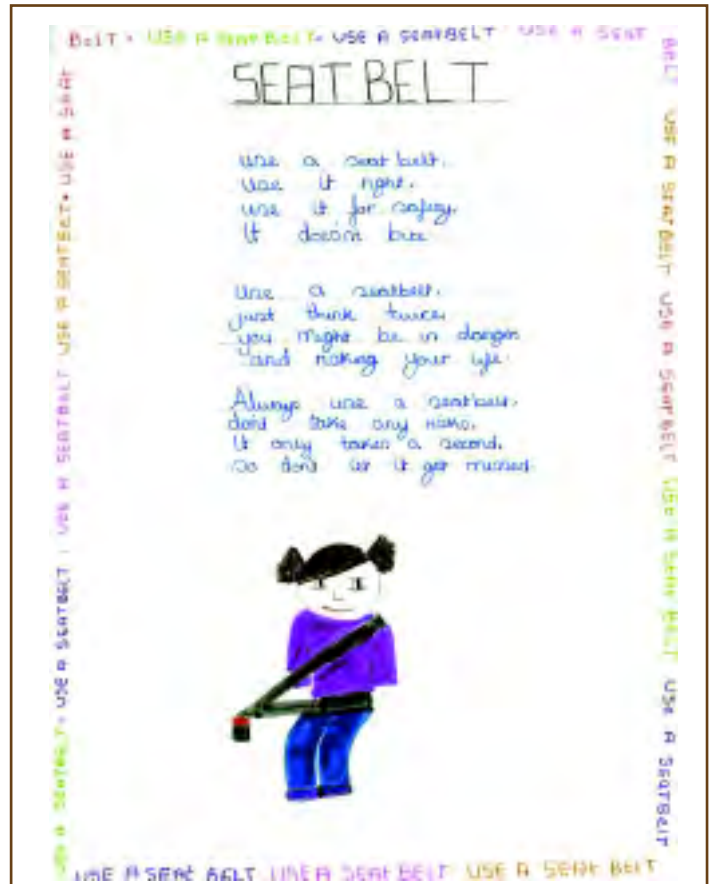 BELT • USE A SEATBELT • USE A SEATBELT USE A SEAT
BELT USE A SEATBELT USE A SEATBELT USE A SEAT BELT USE A SEATBELT
SEATBELT
use a seatbelt.
use it right.
use it for safety.
It doesnt bite
Use a seatbelt.
just think twice
you might be in danger
and risking your life.
Always use a seatbelt.
dont take any risks.
It only takes a second.
So dont let it get missed
USE A SEATBELT • USE A SEATBELT USE A SEATBELT USE A SEATBELT • USE A SEAT
USE A SEAT BELT USE A SEAT BELT USE A SEAT BELT